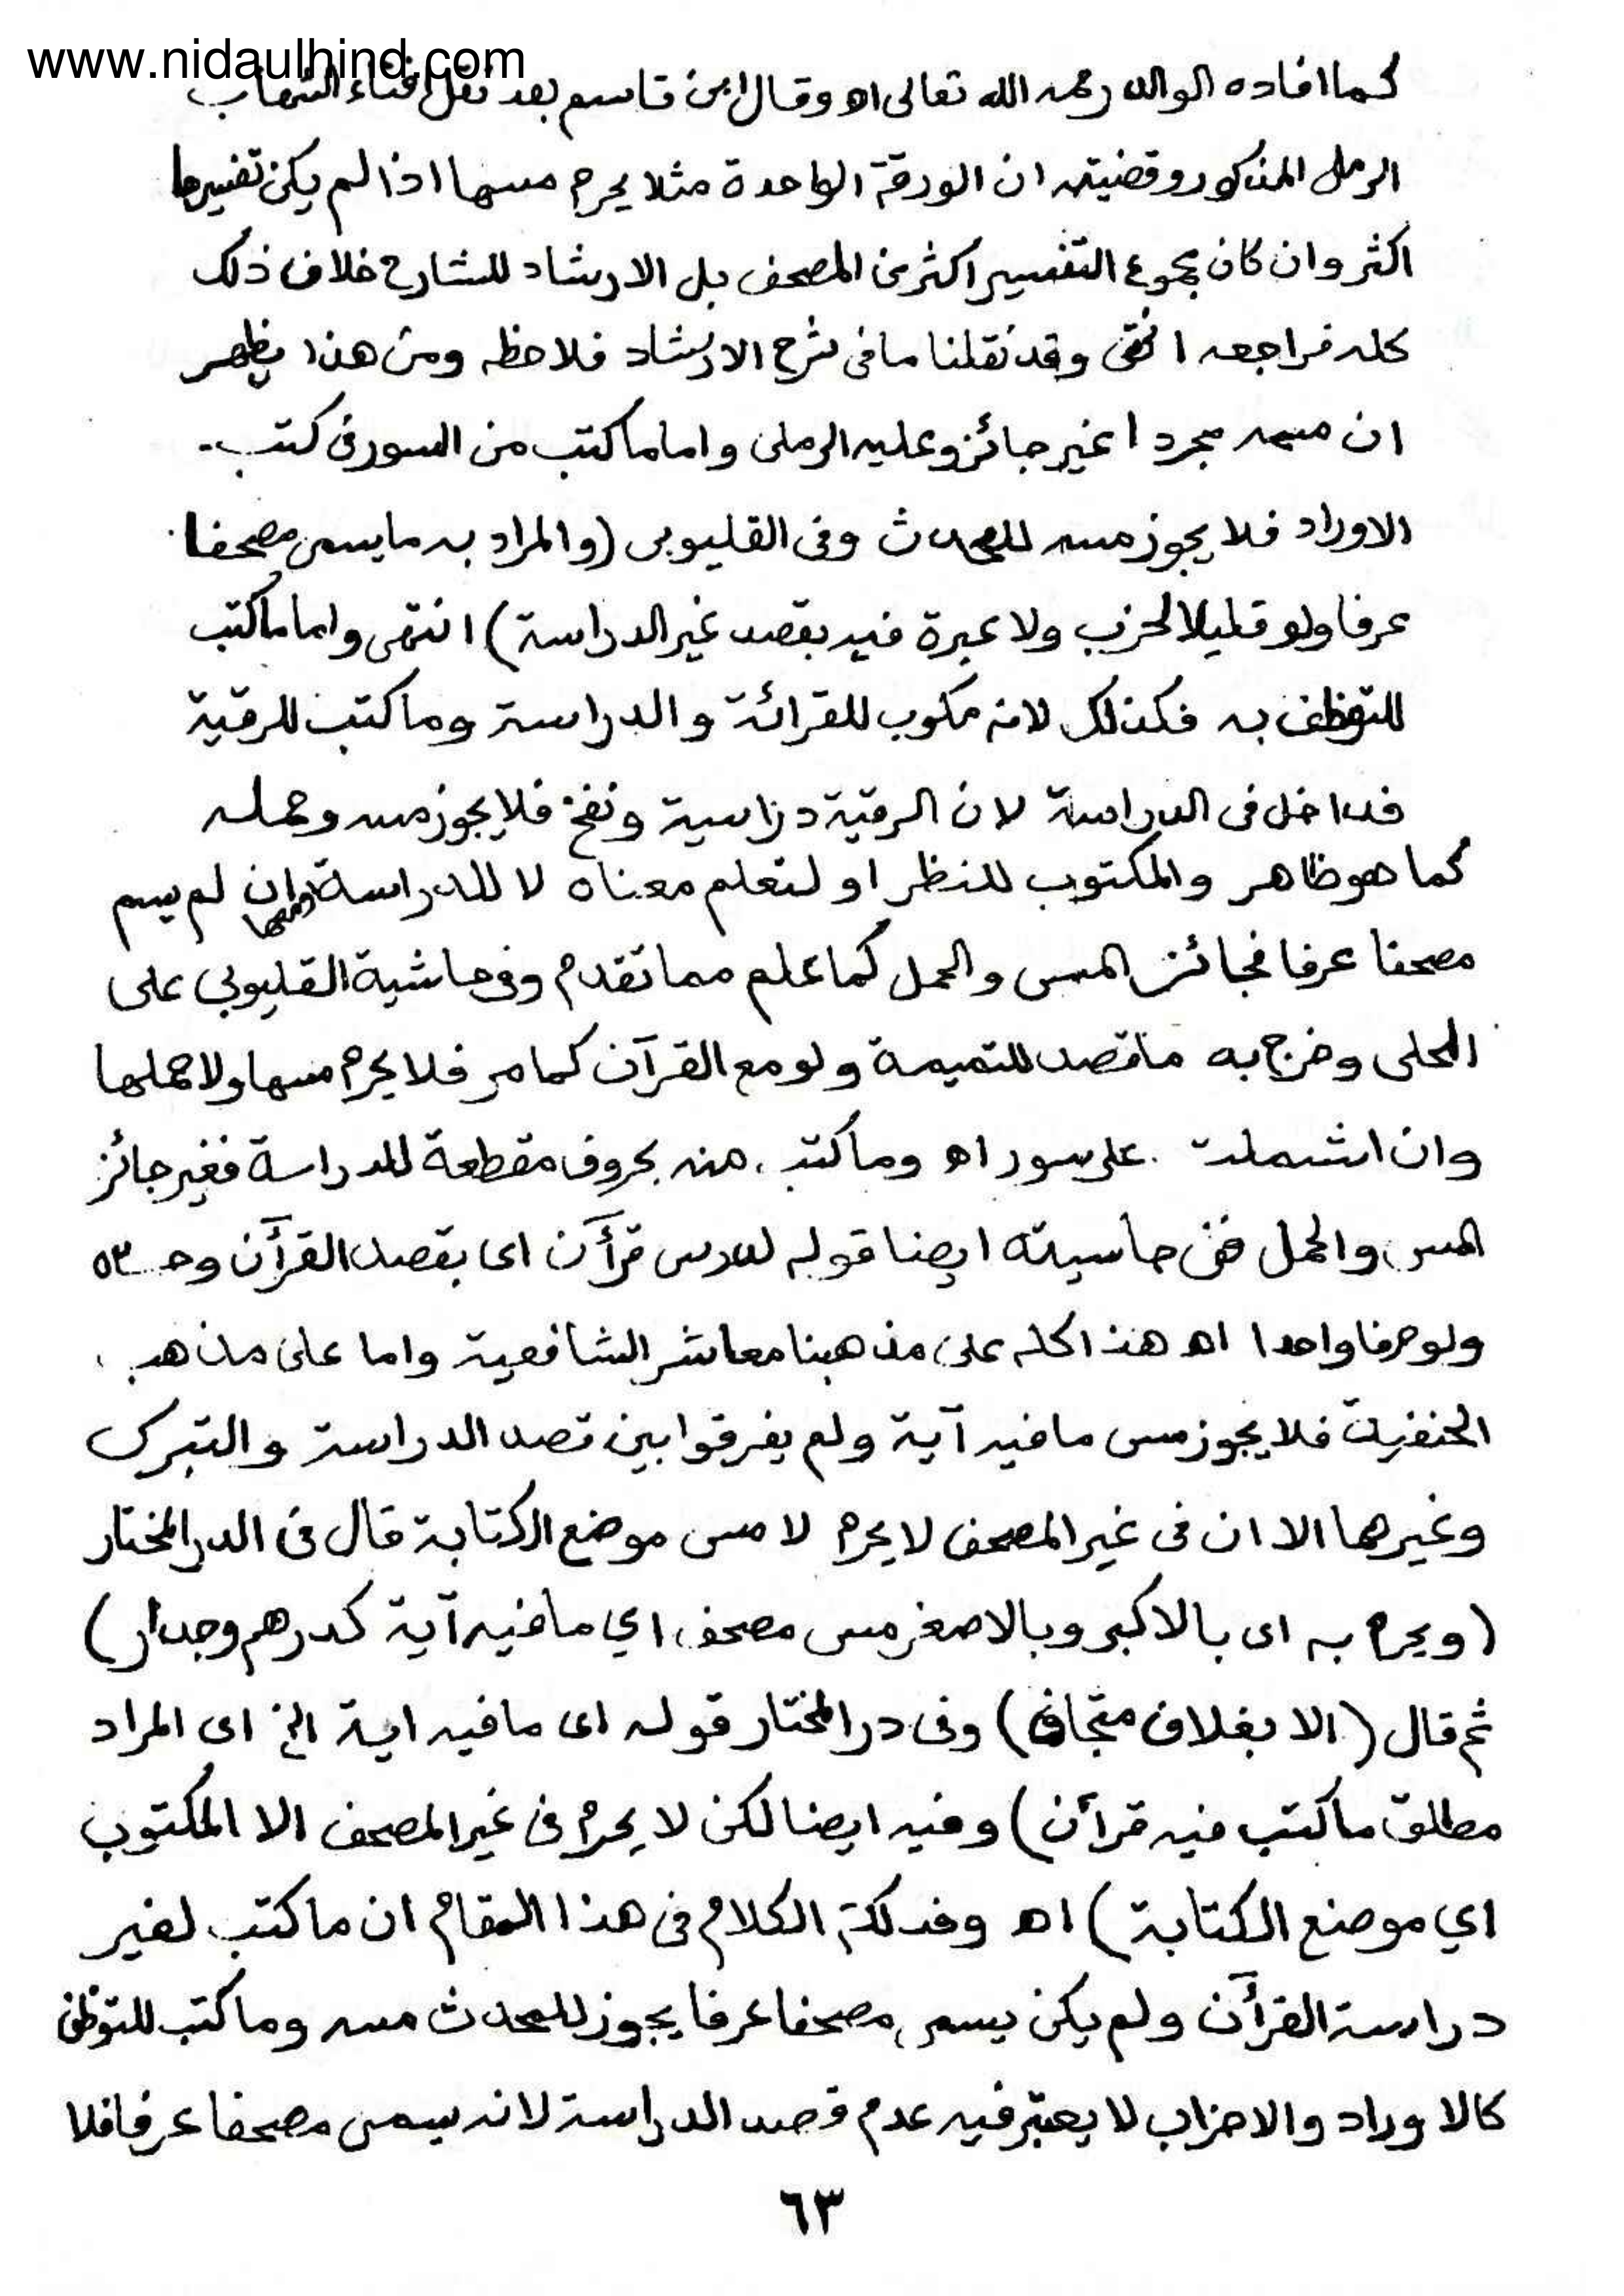 www.nidaulhind.com
كما افاده الوالد رحمه الله تعالى اه وقال ابن قاسم بعد نقل افتاء الشهاب
الرملى المذكور وقضيته ان الورقة الواحدة مثلا يحرم مسها اذا لم يكن تفسيرها
اكثر وان كان مجموع التفسير اكثر من المصحف بل الارشاد للشارح خلاف ذلك
كله فراجعه انتهى وقد نقلنا ما فى شرح الارشاد فلاحظه ومن هذا يظهر
ان مسه مجردا غير جائز وعليه الرملى واما ما كتب من السور فى كتب
الاوراد فلا يجوز مسه للمحدث وفى القليوبى (والمراد به ما يسمى مصحفا
عرفا ولو قليلا لحزب ولا عبرة فيه بقصد غير الدراسة) انتهى واما ما كتب
للتوظف به فكذلك لانه مكوب للقرائة والدراسة وما كتب للرقية
فداخل فى الدراسة لان الرقية دراسية ونفخ فلا يجوز مسه وحمله
كما هو ظاهر والمكتوب للنظر او لتعلم معناه لا للدراسة وان لم يسم
مصحفا عرفا فجائز المس والحمل كما علم مما تقدم وفى حاشية القليوبي على
المحلى وخرج به ما قصد للتميمة ولو مع القرآن كما مر فلا يحرم مسها ولا حملها
وان اشتملت على سور اه وما كتب منه بحروف مقطعة للدراسة فغير جائز
المس والحمل ففى حاسيته ايضا قوله لدرس قرآن اى بقصد القرآن وحده
ولو حرفا واحدا اه هذا كله على مذهبنا معاشر الشافعية واما على مذهب
الحنفية فلا يجوز مس ما فيه آية ولم يفرقوا بين قصد الدراسة والتبرك
وغيرهما الا ان فى غير المصحف لا يحرم لا مس موضع الكتابة قال فى الدر المختار
(ويحرم به اى بالاكبر وبالاصغر مس مصحف اي ما فيه آية كدرهم وجدار)
ثم قال (الا بغلاف متجاف) وفى در المختار قوله اى ما فيه اية الخ اى المراد
مطلق ما كتب فيه قرآن) وفيه ايضا لكن لا يحرم فى غير المصحف الا المكتوب
اي موضع الكتابة) اه وفذلكة الكلام فى هذا المقام ان ما كتب لغير
دراسة القرآن ولم يكن يسمى مصحفا عرفا يجوز للمحدث مسه وما كتب للتوظف
كالاوراد والاحزاب لا يعتبر فيه عدم قصد الدراسة لانه يسمى مصحفا عرفا فلا
٦٣